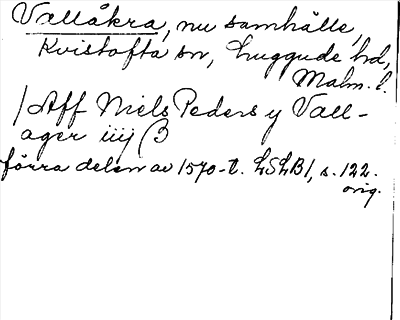 Vallåkra, nu samhälle,
Kvistofta sn, Luggude hd,
Malm. l.
/Aff Niels Peders y Vall-
ager iiij β
förra delen av 1570-t. LSLB1, s. 122.
orig.